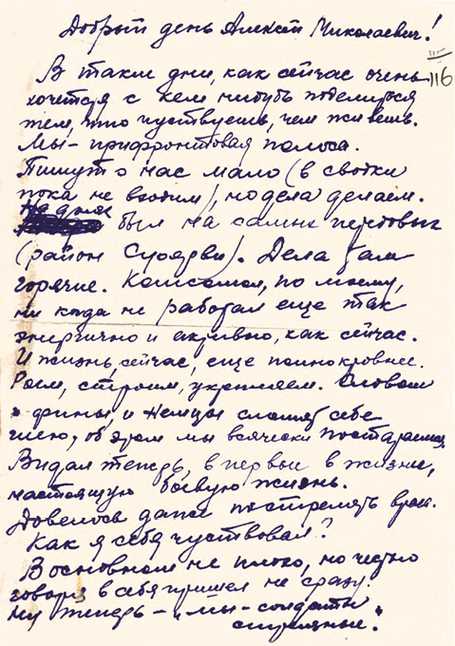 Добрый день Алексей Николаевич!
116
В такие дни, как сейчас очень
хочется с кем нибудь поделиться
тем, что чуствуешь, чем живешь.
Мы - прифронтовая полоса.
Пишут о нас мало (в сводки
пока не входим), но дела делаем.
На днях
был на самых передовых
(район Суоярви). Дела там
горячие. Комсомол, по моему,
ни когда не работал еще так
энергично и активно, как сейчас.
И жизнь, сейчас, еще полнокровнее.
Роем, строим, укрепляем. Словом
финны и немцы сломят себе
шею, об этом мы всячески постараемся.
Видал теперь, в первые в жизни,
настоящую боевую жизнь.
Довелось даже пострелять врага.
Как я себя чуствовал?
В основном не плохо, но честно
говоря в себя пришел не сразу.
Ну теперь - "мы - солдаты
стрелянные."